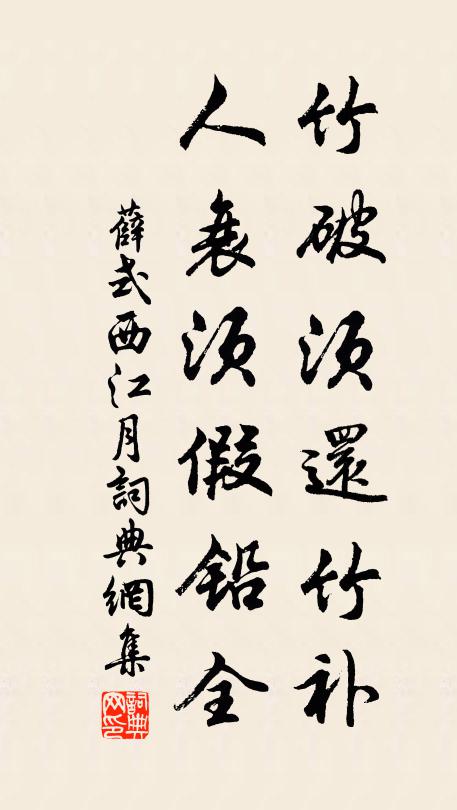 竹破须還竹补
人衰须假铅全
薛式西江月詞典網集
詞典
网印